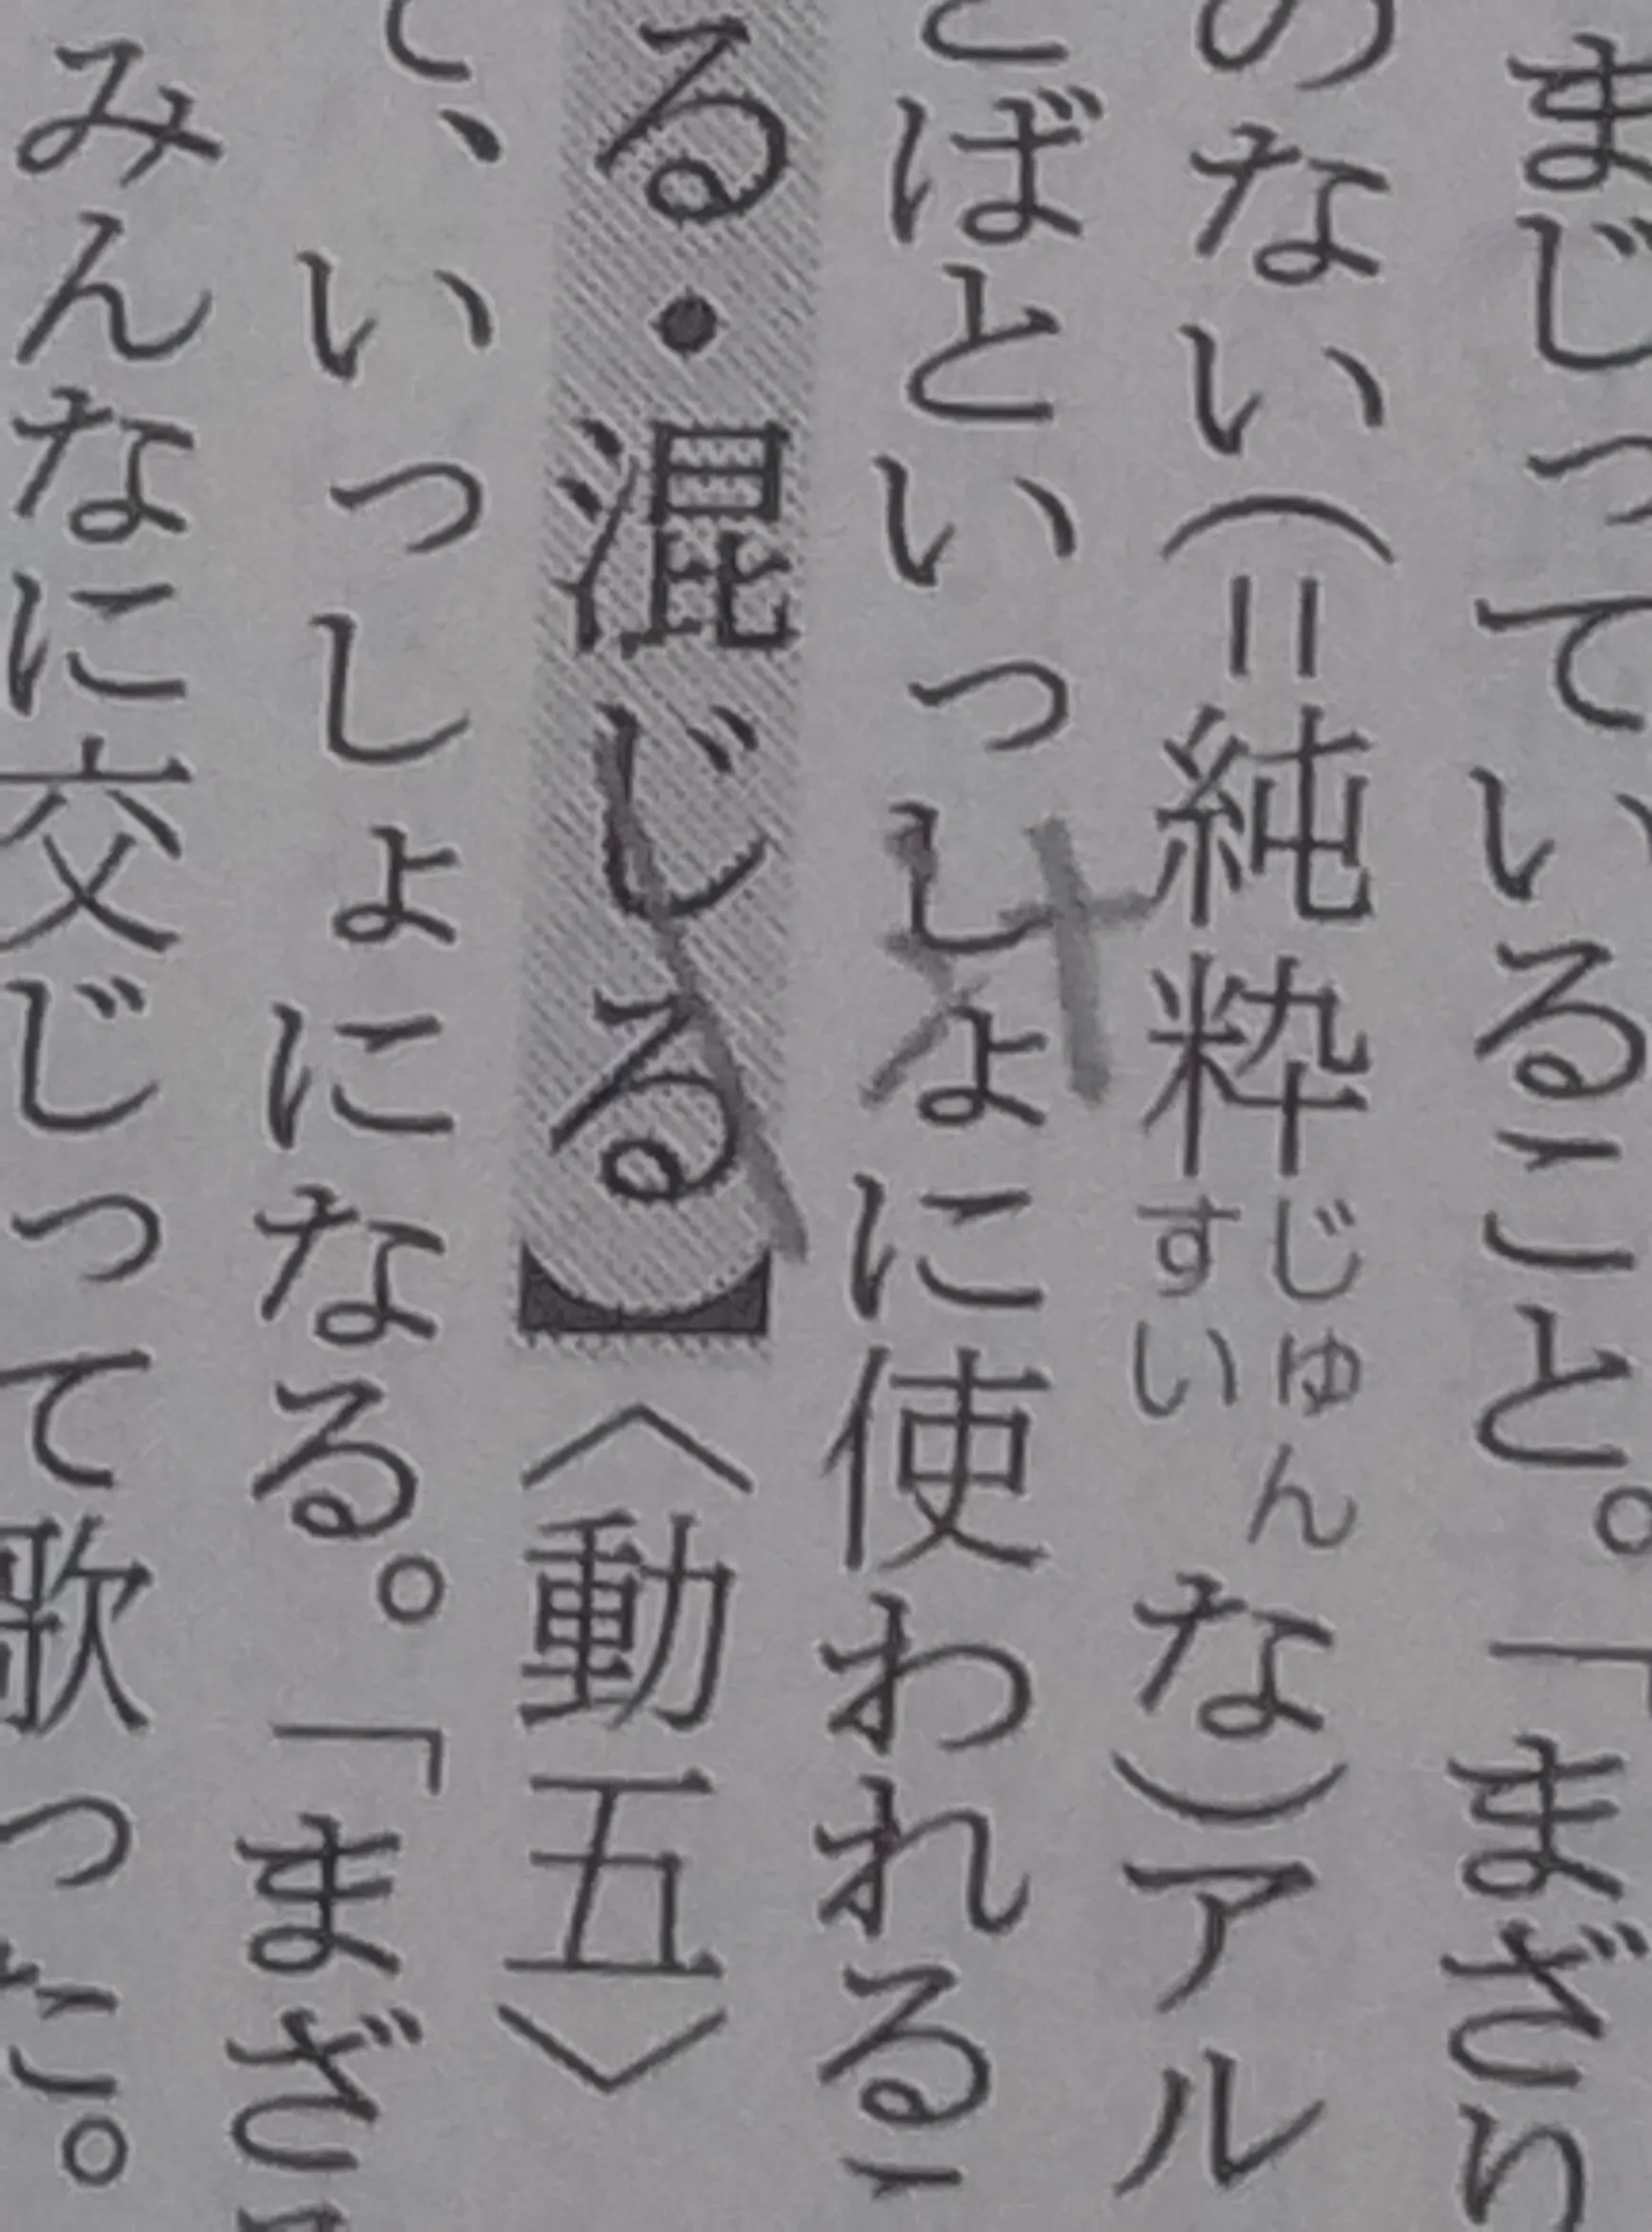 まじっていること。「まざり
のない(=純粋じゅんすいな)アル
とばといっしょに使われるこ
る・混じる】〈動五〉
て、いっしょになる。「まざ
みんなに交じって歌った。